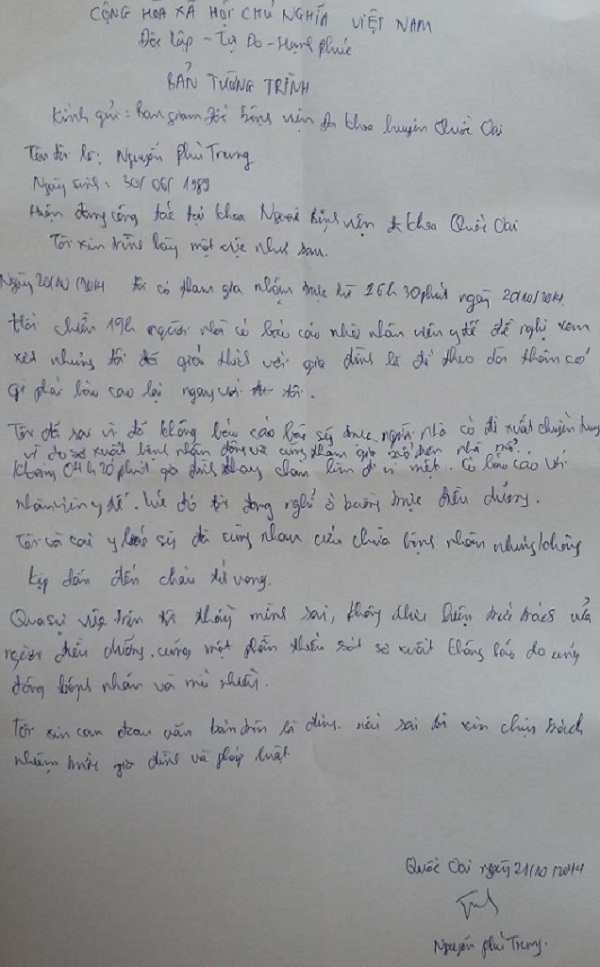 CỘNG HÒA XÃ HỘI CHỦ NGHĨA VIỆT NAM
Độc lập - Tự Do - Hạnh phúc
BẢN TƯỜNG TRÌNH
Kính gửi: Ban giám đốc bệnh viện đa khoa huyện Quốc Oai
Tên tôi là: Nguyễn Phú Trung
Ngày sinh: 30/06/1989
Hiện đang công tác tại khoa Ngoại Bệnh viện đa khoa Quốc Oai
Tôi xin trình bày một việc như sau.
Ngày 20/10/2014 tôi có tham gia nhóm trực từ 16h30phút ngày 20/10/2014
Hồi 19h người nhà có báo cáo nhờ nhân viên y tế đề nghị xem
xét nhưng tôi đã giải thích với gia đình là để theo dõi thêm có
gì phải báo cáo lại ngay với tôi.
Tôi đã sai vì đã không báo cáo bác sỹ trực, người nhà có đề xuất chuyển
vì do sơ xuất bệnh nhân đông và cùng tham gia nhà mổ.
Khoảng 04h20phút gia đình thay chăn lần đi vì mệt. Có báo cáo với
nhân viên y tế. Lúc đó tôi đang nghỉ ở buồng trực điều dưỡng.
Tôi và các y bác sỹ đã cùng nhau cứu chữa bệnh nhân nhưng không
kịp dẫn đến cháu tử vong.
Qua sự việc trên tôi thấy mình sai, không thực hiện trách của
người điều dưỡng. cũng một phần thiếu sót sơ xuất không báo do cũng
đông bệnh nhân và mổ nhiều.
Tôi xin cam đoan văn bản trên là đúng. nếu sai tôi xin chịu trách
nhiệm trước gia đình và pháp luật
Quốc Oai ngày 21/10/2014
Nguyễn Phú Trung.